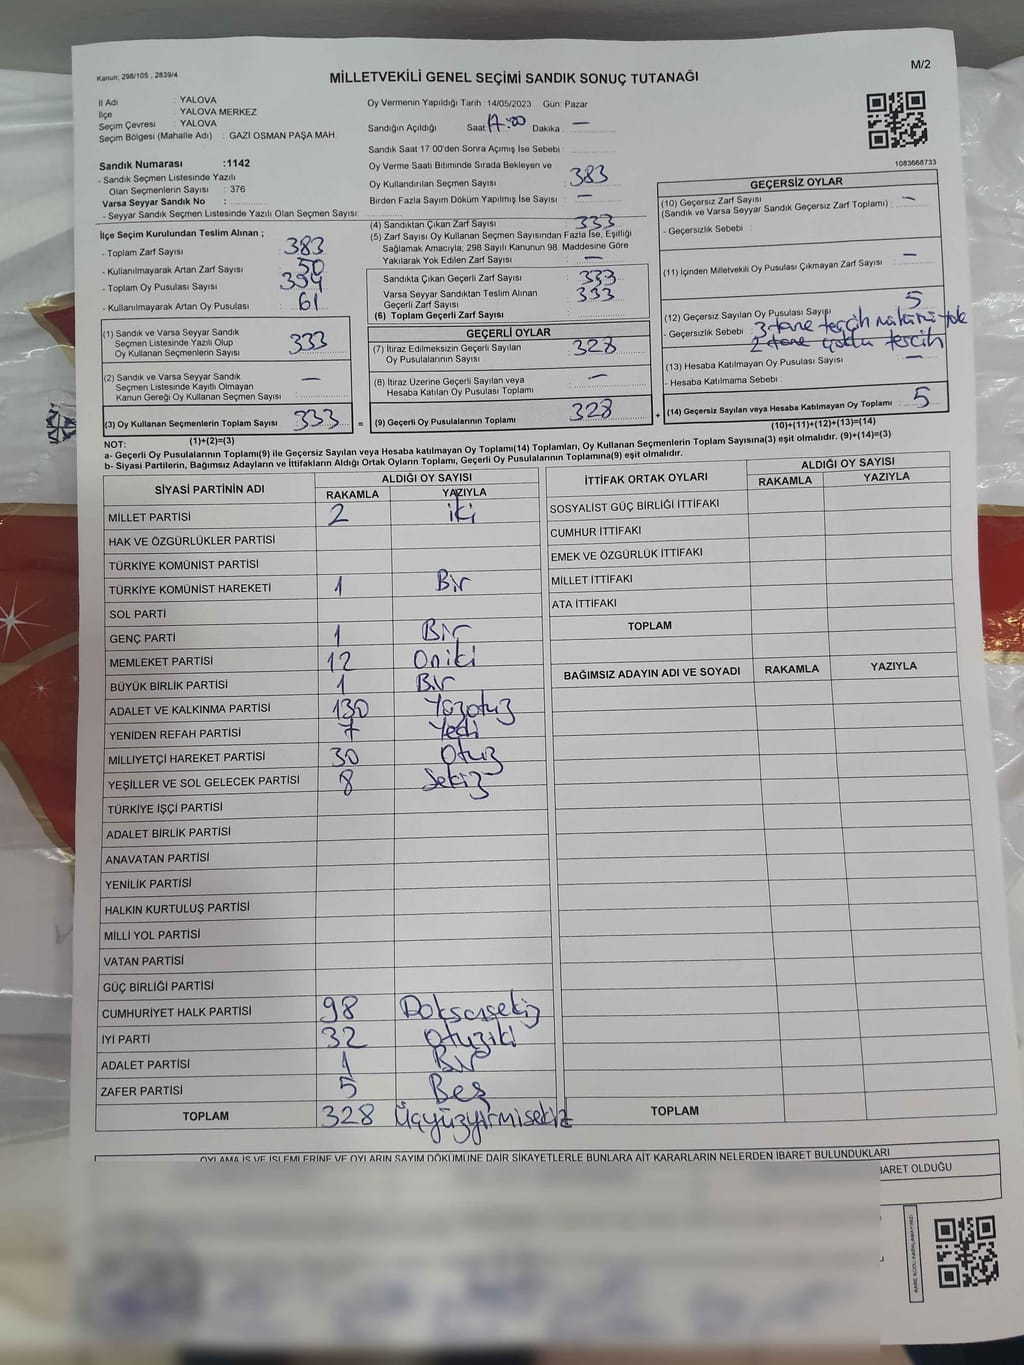 Kanun: 298/105 , 2839/4
MİLLETVEKİLİ GENEL SEÇİMİ SANDIK SONUÇ TUTANAĞI
M/2
İl Adı : YALOVA
İlçe : YALOVA MERKEZ
Seçim Çevresi : YALOVA
Seçim Bölgesi (Mahalle Adı) : GAZİ OSMAN PAŞA MAH.
Sandık Numarası :1142
- Sandık Seçmen Listesinde Yazılı
Olan Seçmenlerin Sayısı : 376
Varsa Seyyar Sandık No :
- Seyyar Sandık Seçmen Listesinde Yazılı Olan Seçmen Sayısı:
Oy Vermenin Yapıldığı Tarih :14/05/2023 Gün: Pazar
Sandığın Açıldığı Saat: 17:00 Dakika : —
Sandık Saat 17:00'den Sonra Açılmış İse Sebebi :
Oy Verme Saati Bitiminde Sırada Bekleyen ve
Oy Kullandırılan Seçmen Sayısı : 383
Birden Fazla Sayım Döküm Yapılmış İse Sayısı : —
1083668733
İlçe Seçim Kurulundan Teslim Alınan ;
- Toplam Zarf Sayısı : 383
- Kullanılmayarak Artan Zarf Sayısı : 50
- Toplam Oy Pusulası Sayısı : 394
- Kullanılmayarak Artan Oy Pusulası : 61
(1) Sandık ve Varsa Seyyar Sandık
Seçmen Listesinde Yazılı Olup
Oy Kullanan Seçmenlerin Sayısı : 333
(2) Sandık ve Varsa Seyyar Sandık
Seçmen Listesinde Kayıtlı Olmayan
Kanun Gereği Oy Kullanan Seçmen Sayısı : —
(3) Oy Kullanan Seçmenlerin Toplam Sayısı : 333 =
(1)+(2)=(3)
(4) Sandıktan Çıkan Zarf Sayısı : 333
(5) Zarf Sayısı Oy Kullanan Seçmen Sayısından Fazla İse, Eşitliği
Sağlamak Amacıyla, 298 Sayılı Kanunun 98. Maddesine Göre
Yakılarak Yok Edilen Zarf Sayısı : —
Sandıkta Çıkan Geçerli Zarf Sayısı : 333
Varsa Seyyar Sandıktan Teslim Alınan
Geçerli Zarf Sayısı : 333
(6) Toplam Geçerli Zarf Sayısı :
GEÇERLİ OYLAR
(7) İtiraz Edilmeksizin Geçerli Sayılan
Oy Pusulalarının Sayısı : 328
(8) İtiraz Üzerine Geçerli Sayılan veya
Hesaba Katılan Oy Pusulası Toplamı : —
(9) Geçerli Oy Pusulalarının Toplamı : 328 +
GEÇERSİZ OYLAR
(10) Geçersiz Zarf Sayısı : —
(Sandık ve Varsa Seyyar Sandık Geçersiz Zarf Toplamı)
- Geçersizlik Sebebi :
(11) İçinden Milletvekili Oy Pusulası Çıkmayan Zarf Sayısı : —
(12) Geçersiz Sayılan Oy Pusulası Sayısı : 5
- Geçersizlik Sebebi : 3 tane tercih mührü Yok
2 tane çoklu tercih
(13) Hesaba Katılmayan Oy Pusulası Sayısı : —
- Hesaba Katılmama Sebebi :
(14) Geçersiz Sayılan veya Hesaba Katılmayan Oy Toplamı : 5
(10)+(11)+(12)+(13)=(14)
NOT:
a- Geçerli Oy Pusulalarının Toplamı(9) ile Geçersiz Sayılan veya Hesaba katılmayan Oy Toplamı(14) Toplamları, Oy Kullanan Seçmenlerin Toplam Sayısına(3) eşit olmalıdır. (9)+(14)=(3)
b- Siyasi Partilerin, Bağımsız Adayların ve İttifakların Aldığı Ortak Oyların Toplamı, Geçerli Oy Pusulalarının Toplamına(9) eşit olmalıdır.
SİYASİ PARTİNİN ADI ALDIĞI OY SAYISI
RAKAMLA YAZIYLA
MİLLET PARTİSİ 2 iki
HAK VE ÖZGÜRLÜKLER PARTİSİ
TÜRKİYE KOMÜNİST PARTİSİ
TÜRKİYE KOMÜNİST HAREKETİ 1 Bir
SOL PARTİ
GENÇ PARTİ 1 Bir
MEMLEKET PARTİSİ 12 Oniki
BÜYÜK BİRLİK PARTİSİ 1 Bir
ADALET VE KALKINMA PARTİSİ 130 Yüzotuz
YENİDEN REFAH PARTİSİ 7 Yedi
MİLLİYETÇİ HAREKET PARTİSİ 30 Otuz
YEŞİLLER VE SOL GELECEK PARTİSİ 8 Sekiz
TÜRKİYE İŞÇİ PARTİSİ
ADALET BİRLİK PARTİSİ
ANAVATAN PARTİSİ
YENİLİK PARTİSİ
HALKIN KURTULUŞ PARTİSİ
MİLLİ YOL PARTİSİ
VATAN PARTİSİ
GÜÇ BİRLİĞİ PARTİSİ
CUMHURİYET HALK PARTİSİ 98 Doksansekiz
İYİ PARTİ 32 Otuziki
ADALET PARTİSİ 1 Bir
ZAFER PARTİSİ 5 Beş
TOPLAM 328 Üçyüzyirmisekiz
İTTİFAK ORTAK OYLARI ALDIĞI OY SAYISI
RAKAMLA YAZIYLA
SOSYALİST GÜÇ BİRLİĞİ İTTİFAKI
CUMHUR İTTİFAKI
EMEK VE ÖZGÜRLÜK İTTİFAKI
MİLLET İTTİFAKI
ATA İTTİFAKI
TOPLAM
BAĞIMSIZ ADAYIN ADI VE SOYADI RAKAMLA YAZIYLA
TOPLAM
OYLAMA İŞ VE İŞLEMLERİNE VE OYLARIN SAYIM DÖKÜMÜNE DAİR ŞİKAYETLERLE BUNLARA AİT KARARLARIN NELERDEN İBARET BULUNDUKLARI
BARET OLDUĞU
KARE KODU KARALAMAYINIZ!